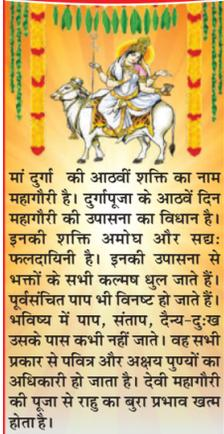 मां दुर्गा की आठवीं शक्ति का नाम
महागौरी है। दुर्गापूजा के आठवें दिन
महागौरी की उपासना का विधान है।
इनकी शक्ति अमोघ और सद्य:
फलदायिनी है। इनकी उपासना से
भक्तों के सभी कल्मष धुल जाते हैं।
पूर्वसंचित पाप भी विनष्ट हो जाते हैं।
भविष्य में पाप, संताप, दैन्य-दु:ख
उसके पास कभी नहीं जाते। वह सभी
प्रकार से पवित्र और अक्षय पुण्यों का
अधिकारी हो जाता है। देवी महागौरी
की पूजा से राहु का बुरा प्रभाव खत्म
होता है।